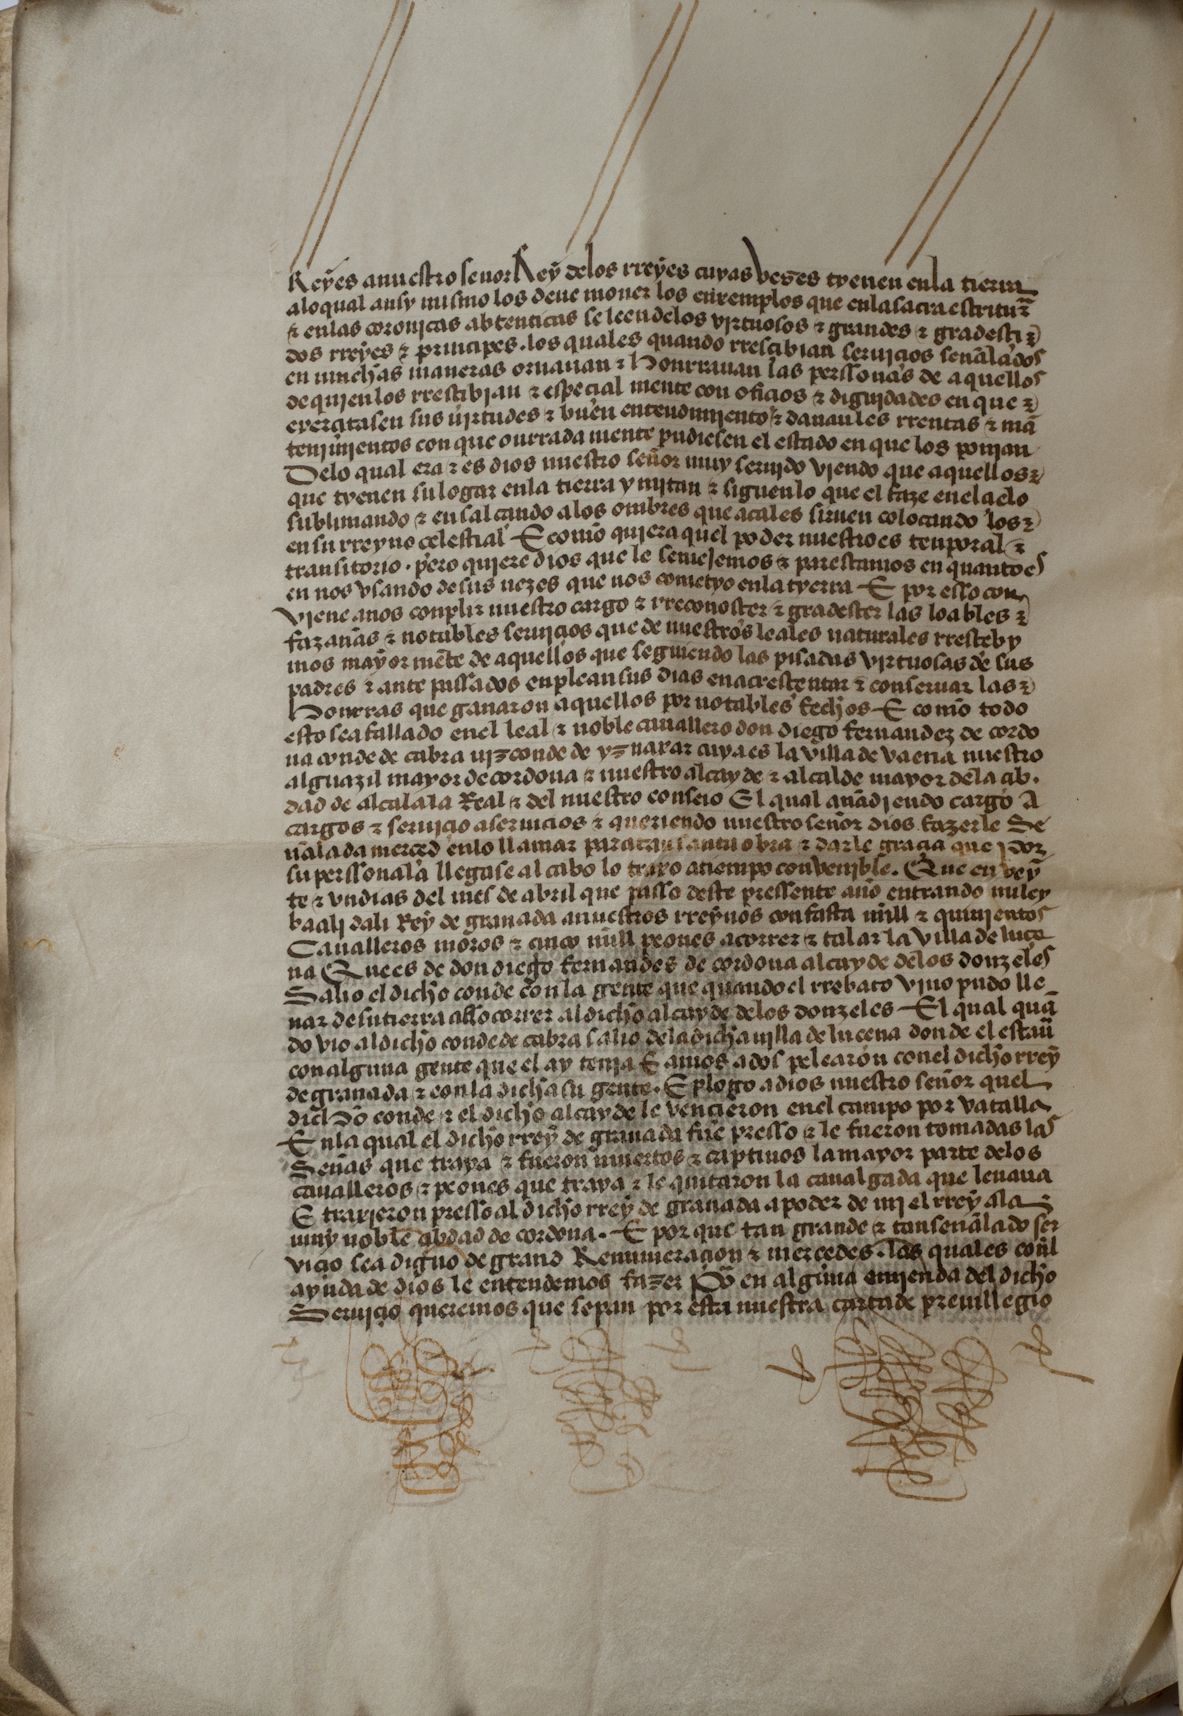 Reyes a nuestro señor Rey delos rreyes cuyas vezes tyenen enla tierra
alo qual ansy mismo los deue mouer los enxemplos que enla sacra escritura
& enlas coronicas abtenticas se leen delos virtuosos & grandes & gradesçi
dos rreyes & principes . los quales quando rresçibian seruiçios señalados
en muchas maneras ornauan & honrrauan las perssonas de aquellos
de quien los rresçibian & especial mente con ofiçios & dignidades en que
exerçitasen sus uirtudes & buen entendimiento & dauanles rrentas & mã
tenimientos con que onrrada mente pudiesen el estado en que los ponian
Delo qual era & es dios nuestro señor muy seruido viendo que aquellos
que tyenen su logar enla tierra ymitan & siguen lo que el faze enel çielo
sublimando & ensalçando alos ombres que acales siruen colocando los
en su rreyno çelestial E como quiera quel poder nuestro es tenporal &
transitorio . pero quiere dios que le semejemos & parescamos en quanto es
en nos vsando de sus uezes que nos cometyo enla tyerra E por esso con
viene anos conplir nuestro cargo & rreconosçer & gradesçer las loables &
fazañas & notables seruiçios que de nuestros leales naturales rresçeby
mos mayor mẽte de aquellos que seguiendo las pisadas virtuosas de sus
padres & ante passados enplean sus dias en acresçentar & conseruar las
honrras que ganaron aquellos por notables fechos E como todo
esto sea fallado enel leal & noble cauallero don diego fernandez de cordo
ua conde de cabra uizconde de yznaxar cuya es la villa de vaena nuestro
alguazil mayor de cordoua & nuestro alcayde & alcalde mayor dela çib.
dad de alcala la Real & del nuestro conseio El qual añadiendo cargo A
cargos & seruiçio a seruiçios & queriendo nuestro señor dios fazerle Se
ñalada merced enlo llamar para tan santa obra & darle graçia que por
su perssona la llegase al cabo lo traxo a tiempo convenible . Que en veỹ
te & vn dias del mes de abril que passo deste pressente año entrando muley
baali dali Rey de granada a nuestros rreynos con fasta mill & quinientos
Caualleros moros & çinco mill peones a correr & talar la villa de luçe
na Que es de don diego fernandes de cordoua alcayde delos donzeles
Salio el dicho conde con la gente que quando el rrebato vino pudo lle
uar de su tierra a ssocorrer al dicho alcayde delos donzeles El qual quã
do vio al dicho conde de cabra salio dela dicha uilla de lucena donde el estaua
con alguna gente que el ay tenia E amos a dos pelearon conel dicho rrey
de granada & conla dicha su gente . E plogo a dios nuestro señor quel
dicho conde & el dicho alcayde le vençieron enel campo por vatalla
Enla qual el dicho rrey de granada fue presso & le fueron tomadas las
Señas que traya & fueron muertos & captiuos la mayor parte delos
caualleros & peones que traya & le quitaron la caualgada que leuaua
E traxieron presso al dicho rrey de granada a poder de mi el rrey ala
muy noble çibdad de cordoua . E por que tan grande & tan señalado ser
viçio sea digno de grand Renumeraçion & mercedes . las quales con el
ayuda de dios le entendemos fazer en alguna emienda del dicho
Seruiçio queremos que sepan por esta nuestra carta de preuillegio